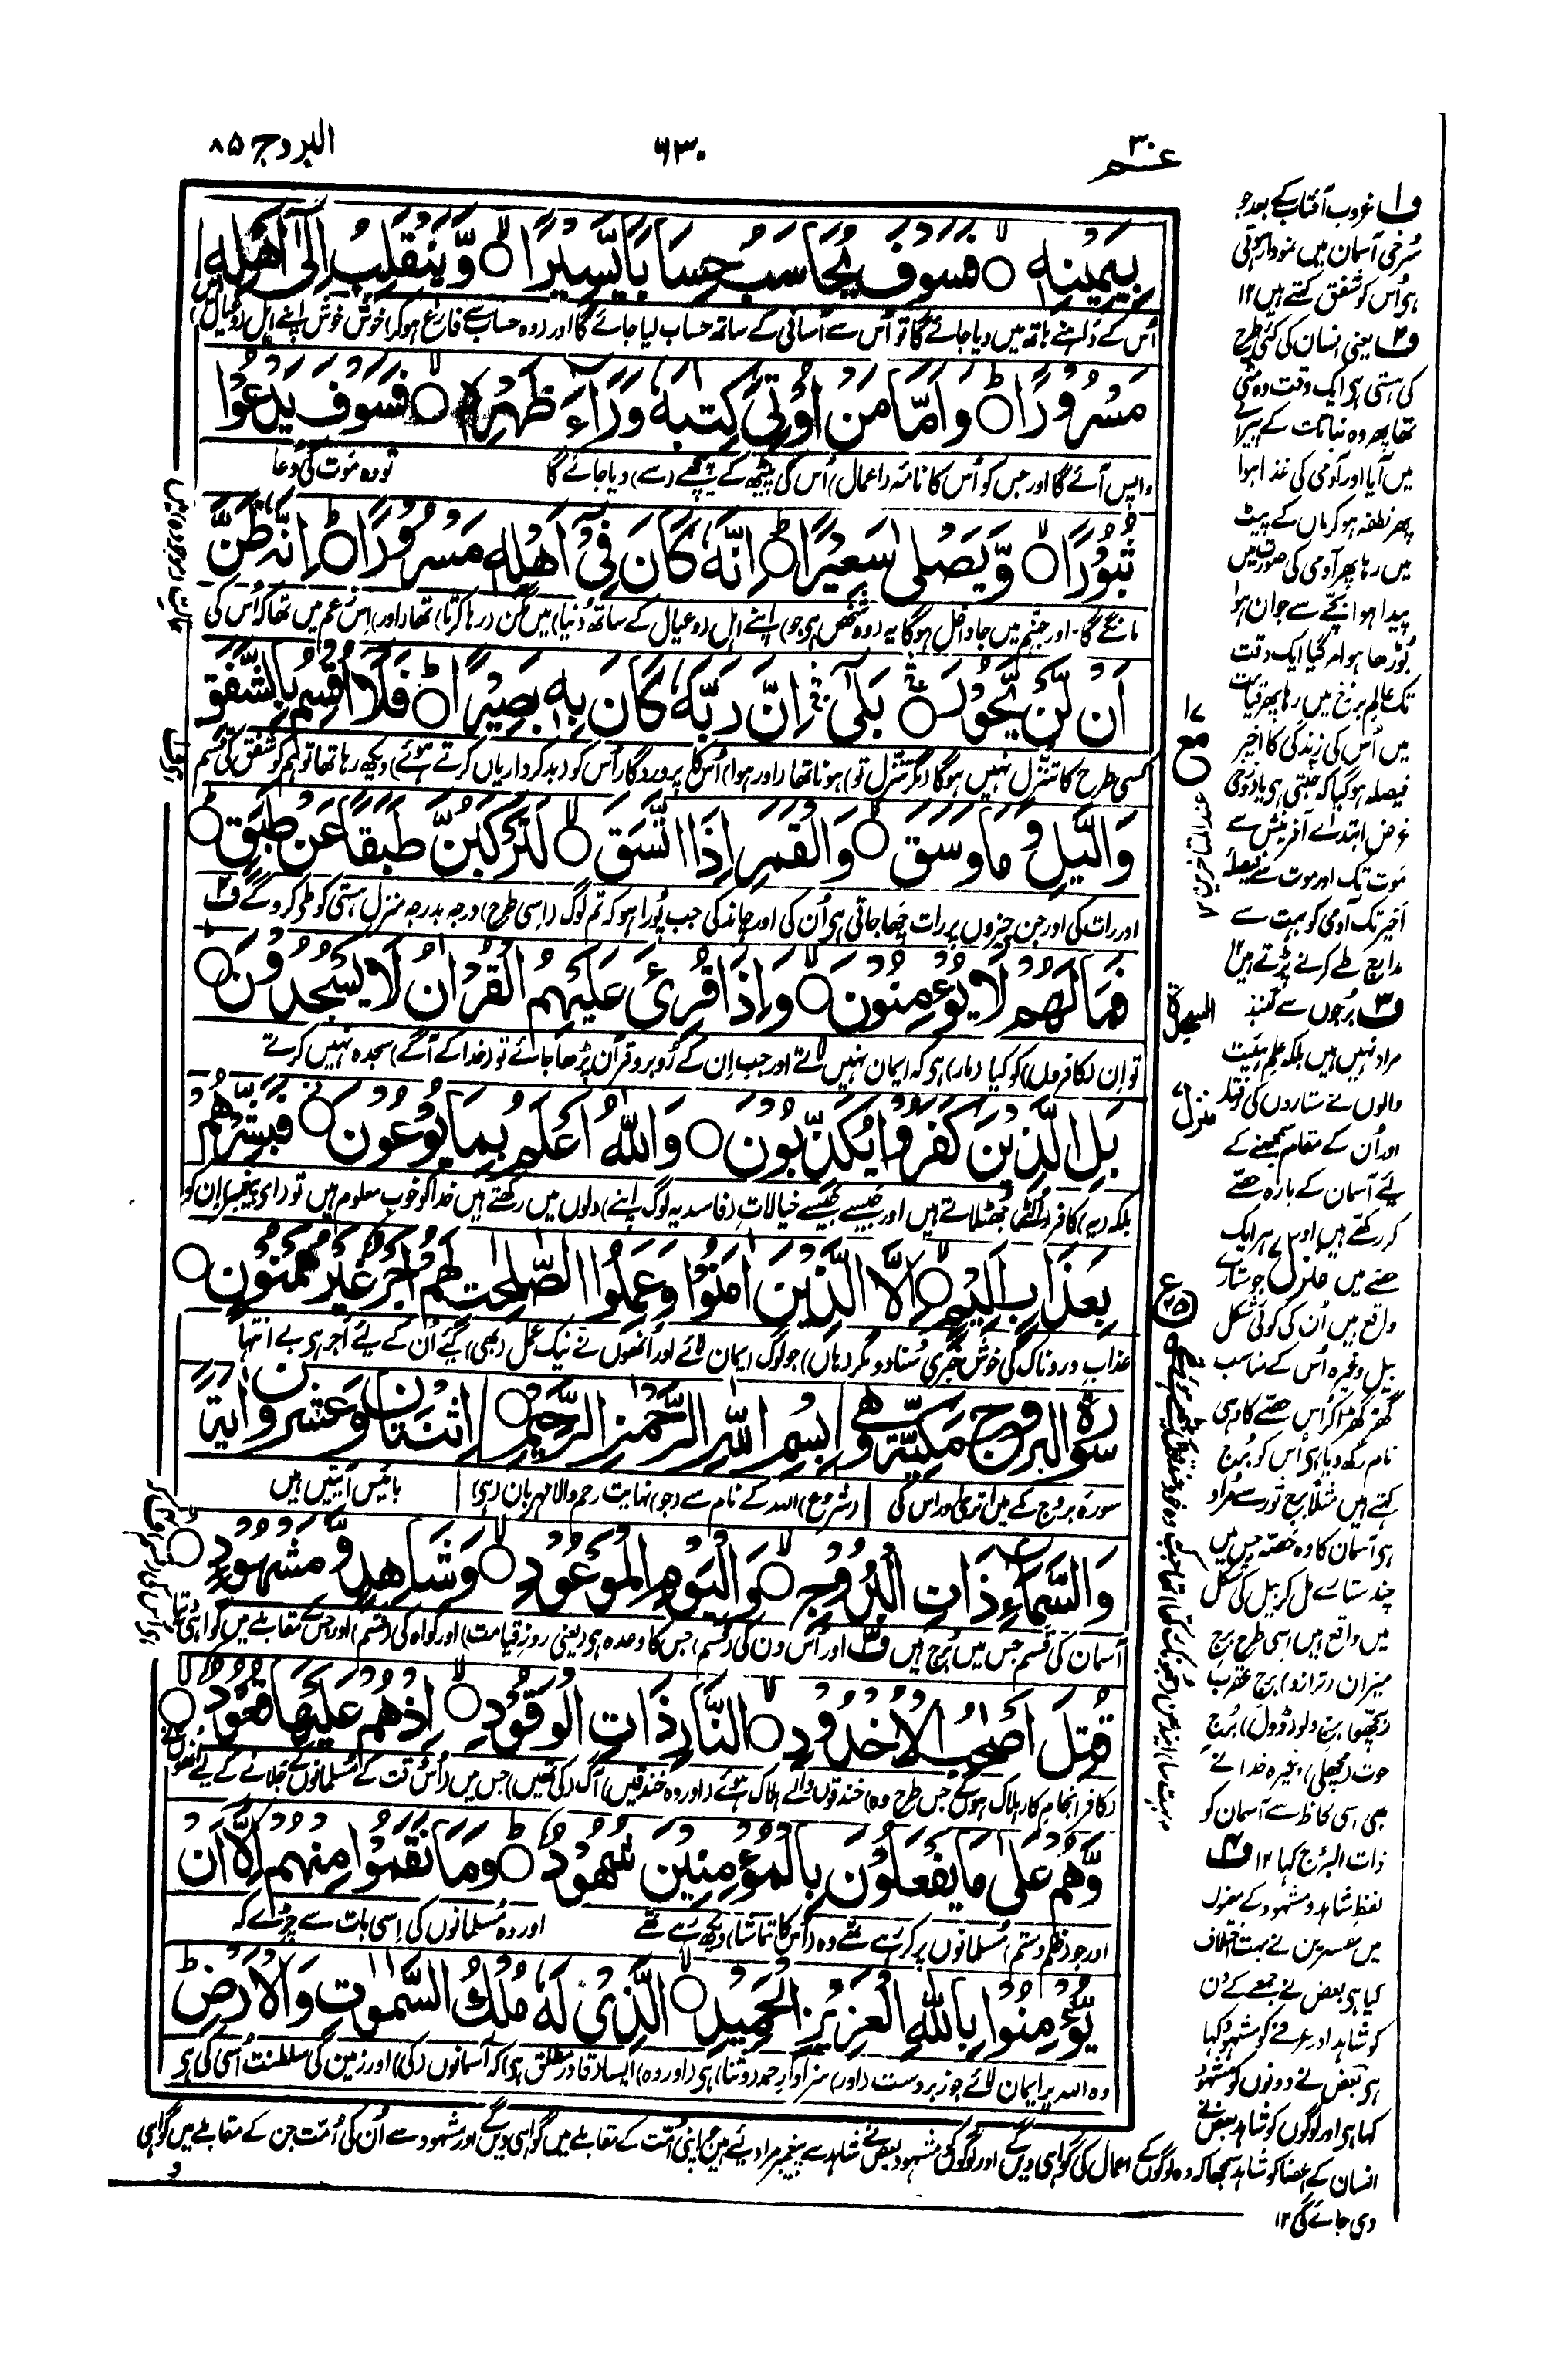 عـم ٣٠
٦٣٠
البروج ٨٥
بِيَمِيْنِهٖ ۙ فَسَوْفَ يُحَاسَبُ حِسَابًا يَّسِيْرًا ۙ وَّيَنْقَلِبُ اِلٰٓى اَهْلِهٖ
اُس کے داہنے ہاتھ میں دیا جائے گا تو اُس سے آسانی کے ساتھ حساب لیا جائے گا اور (وہ حساب سے فارغ ہو کر) خوش خوش اپنے اہل (و عیال)
مَسْرُوْرًا ؕ وَاَمَّا مَنْ اُوْتِيَ كِتٰبَهٗ وَرَآءَ ظَهْرِهٖ ۙ فَسَوْفَ يَدْعُوْا
واپس آئے گا اور جس کو اُس کا نامۂ (اعمال) اُس کی پیٹھ کے پیچھے (سے) دیا جائے گا تو وہ موت کی دعا
ثُبُوْرًا ۙ وَّيَصْلٰى سَعِيْرًا ؕ اِنَّهٗ كَانَ فِيْٓ اَهْلِهٖ مَسْرُوْرًا ؕ اِنَّهٗ ظَنَّ
مانگے گا۔ اور جہنم میں جا داخل ہوگا یہ (وہ شخص ہی جو) اپنے اہل (و عیال کے ساتھ دُنیا) میں مگن (رہا کرتا) تھا (اور) اِس زعم میں تھا کہ اُس کی
اَنْ لَّنْ يَّحُوْرَ ۚ بَلٰٓى ۛ اِنَّ رَبَّهٗ كَانَ بِهٖ بَصِيْرًا ؕ فَلَآ اُقْسِمُ بِالشَّفَقِ
کسی طرح کا تنزل نہیں ہوگا (مگر تنزل تو) ہونا تھا (اور ہوا) اُس کا پروردگار اُس کو (بدکرداریاں کرتے ہوئے) دیکھ رہا تھا تو ہم کو شفق کی قسم
وَالَّيْلِ وَمَا وَسَقَ ۙ وَالْقَمَرِ اِذَا اتَّسَقَ ۙ لَتَرْكَبُنَّ طَبَقًا عَنْ طَبَقٍ ؕ
اور رات کی اور جن چیزوں پر رات چھا جاتی ہی اُن کی اور چاند کی جب پُورا ہو کہ تم لوگ (اسی طرح) درجہ بدرجہ منزل ہستی کو طے کروگے ف۲
فَمَا لَهُمْ لَا يُؤْمِنُوْنَ ۙ وَاِذَا قُرِئَ عَلَيْهِمُ الْقُرْاٰنُ لَا يَسْجُدُوْنَ
تو اِن (کافروں) کو کیا (مار) ہی کہ ایمان نہیں لاتے اور جب اِن کے رُوبرو قرآن پڑھا جائے تو (خدا کے آگے) سجدہ نہیں کرتے
بَلِ الَّذِيْنَ كَفَرُوْا يُكَذِّبُوْنَ ۖ وَاللّٰهُ اَعْلَمُ بِمَا يُوْعُوْنَ ۖ فَبَشِّرْهُمْ
بلکہ (یہ) کافر (اُلٹے) جھٹلاتے ہیں اور جیسے جیسے خیالات (فاسد یہ لوگ اپنے) دلوں میں رکھتے ہیں خدا کو خوب معلوم ہیں تو (ای پیغمبر) اِن کو
بِعَذَابٍ اَلِيْمٍ ۙ اِلَّا الَّذِيْنَ اٰمَنُوْا وَعَمِلُوا الصّٰلِحٰتِ لَهُمْ اَجْرٌ غَيْرُ مَمْنُوْنٍ
عذاب دردناک کی خوش خبری سُنا دو مگر (ہاں) جو لوگ ایمان لائے اور اُنھوں نے نیک عمل (بھی) کیے اُن کے لیے اجر ہی بے انتہا
سُوْرَةُ الْبُرُوْجِ مَكِّيَّةٌ وَّهِيَ بِسْمِ اللّٰهِ الرَّحْمٰنِ الرَّحِيْمِ اِثْنَتَانِ وَعِشْرُوْنَ اٰيَةً
سورہ بروج مکے میں اتری اور اس کی (شروع) اللہ کے نام سے (جو) نہایت رحم والا مہربان (ہی) بائیس آیتیں ہیں
وَالسَّمَآءِ ذَاتِ الْبُرُوْجِ ۙ وَالْيَوْمِ الْمَوْعُوْدِ ۙ وَشَاهِدٍ وَّمَشْهُوْدٍ
آسمان کی قسم جس میں بُرج ہیں ف۳ اور اُس دن کی (قسم) جس کا وعدہ ہی (یعنی روزِ قیامت) اور گواہ کی (قسم) اور جس کے مقابلے میں گواہی دیتا
قُتِلَ اَصْحٰبُ الْاُخْدُوْدِ ۙ النَّارِ ذَاتِ الْوَقُوْدِ ۙ اِذْ هُمْ عَلَيْهَا قُعُوْدٌ ۙ
(کافر انجام کار ہلاک ہونگے جس طرح وہ) خندقوں والے ہلاک ہوئے (اور وہ خندقیں) آگ (کی تھیں) جس میں (اُس وقت کے مسلمانوں کے جلانے کے لیے اُنھوں نے
وَّهُمْ عَلٰى مَا يَفْعَلُوْنَ بِالْمُؤْمِنِيْنَ شُهُوْدٌ ؕ وَمَا نَقَمُوْا مِنْهُمْ اِلَّآ اَنْ
اور جو (ظلم و ستم) مُسلمانوں پر کر رہے تھے وہ (اُس کا تماشا) دیکھ رہے تھے اور وہ مُسلمانوں کی اِسی بات سے چِڑے کہ
يُّؤْمِنُوْا بِاللّٰهِ الْعَزِيْزِ الْحَمِيْدِ ۙ الَّذِيْ لَهٗ مُلْكُ السَّمٰوٰتِ وَالْاَرْضِ ؕ
وہ اللہ پر ایمان لائے جو زبردست (اور) سزاوار حمد (و ثنا) ہی (اور وہ) ایسا (قادر مطلق ہی) کہ آسمانوں (کی) اور زمین کی سلطنت اُسی کی ہی
ف۱ غروب آفتاب کے بعد جو
سُرخی آسمان میں نمودار ہوتی
ہی اُس کو شفق کہتے ہیں ۱۲
ف۲ یعنی انسان کی کئی طرح
کی ہستی ہی ایک وقت وہ مٹی
تھا پھر وہ نباتات کے پیرائے
میں آیا اور آدمی کی غذا ہوا
پھر نطفہ ہو کر ماں کے پیٹ
میں رہا پھر آدمی کی صورت میں
پیدا ہوا بچّے سے جوان ہوا
بُوڑھا ہوا مر گیا ایک وقت
تک عالم برزخ میں رہا پھر قیامت
میں اُس کی زندگی کا اخیر
فیصلہ ہو گیا کہ جنّتی ہی یا دوزخی
غرض ابتداے آفرینش سے
موت تک اور موت سے فیصلۂ
اخیر تک آدمی کو بہت سے
مدارج طے کرنے پڑتے ہیں ۱۲
ف۳ بُرجوں سے گنبد
مراد نہیں ہیں بلکہ علم ہیئت
والوں نے ستاروں کی رفتار
اور اُن کے مقام سمجھنے کے
لیے آسمان کے بارہ حصّے
کر رکھے ہیں اور ہر ایک
حصّے میں جو ستارے
واقع ہیں اُن کی کوئی شکل
بیل وغیرہ اُس کے مناسب
گھڑ گھڑا کر اُس حصّے کا وہی
نام رکھ دیا ہی اُس کو بُرج
کہتے ہیں مثلاً برج ثور سے مُراد
ہی آسمان کا وہ حصّہ جس میں
چند ستارے مل کر بیل کی شکل
میں واقع ہیں اسی طرح برج
میزان (ترازو) برج عقرب
(بچھو) برج دلو (ڈول) بُرج
حوت (مچھلی) وغیرہ خدا نے
بھی اسی لحاظ سے آسمان کو
ذات البروج کہا ۱۲ ف۴
لفظ شاہد و مشہود کے
میں مفسرین نے بہت اختلاف
کیا ہی بعض نے جمعے کے دن
کو شاہد اور عرفے کو مشہود کہا
ہی بعض نے دونوں کو مشہود
کہا ہی اور لوگوں کو شاہد بعض نے
انسان کے اعضا کو شاہد سمجھا کہ وہ لوگوں کے اعمال کی گواہی دیں گے اور لوگوں کو مشہود بعض نے شاہد سے پیغمبر مراد لیے ہیں جو اپنی اُمّت کے مقابلے میں گواہی دیں گے اور مشہود سے اُن کی اُمّت جن کے مقابلے میں گواہی
دی جائے گی ۱۲
السجدة
منزل ۷